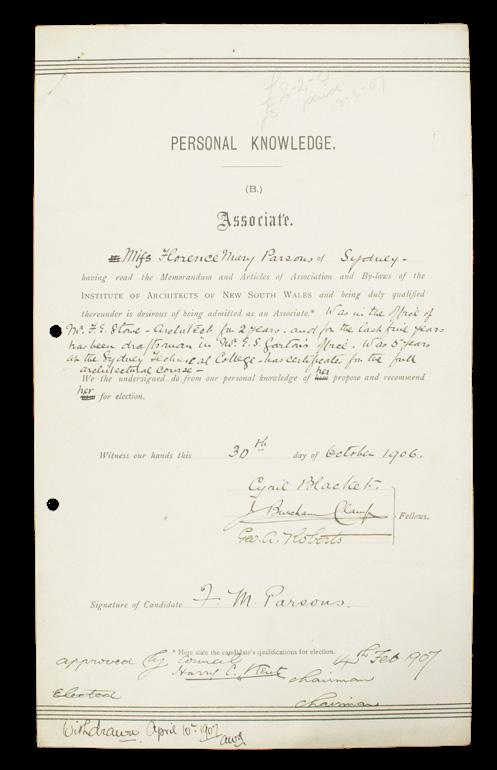 £2-2-0
paid
13-2-07
PERSONAL KNOWLEDGE.
(B.)
Associate.
Miss Florence Mary Parsons of Sydney -
having read the Memorandum and Articles of Association and By-laws of the
INSTITUTE OF ARCHITECTS OF NEW SOUTH WALES and being duly qualified
thereunder is desirous of being admitted as an Associate.* Was in the office of
Mr. F. E. Stowe - Architect for 2 years - and for the last five years
has been draftsman in Mr. E. S. Garton's office. Was 5 years
at the Sydney Technical College - has certificate for the full
architectural course -
We the undersigned do from our personal knowledge of him her propose and recommend
her him for election.
Witness our hands this 30th day of October 1906.
Cyril Blacket.
J. Burcham Clamp
Geo. A. Roberts
Fellows.
Signature of Candidate F. M. Parsons.
* Here state the candidate's qualifications for election.
approved by Council 4th Feb 1907
Harry C. Kent chairman
Elected
chairman
Withdrawn April 10th 1907